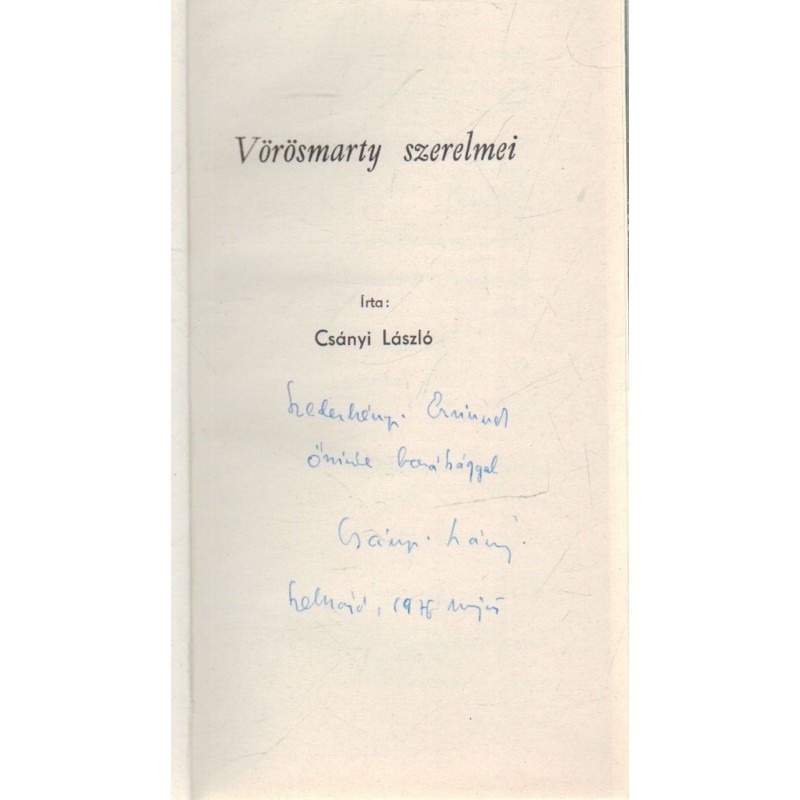 Vörösmarty szerelmei
Írta:
Csányi László
Szederkényi Ervinnek
őszinte barátsággal
Csányi László
Szekszárd, 1976